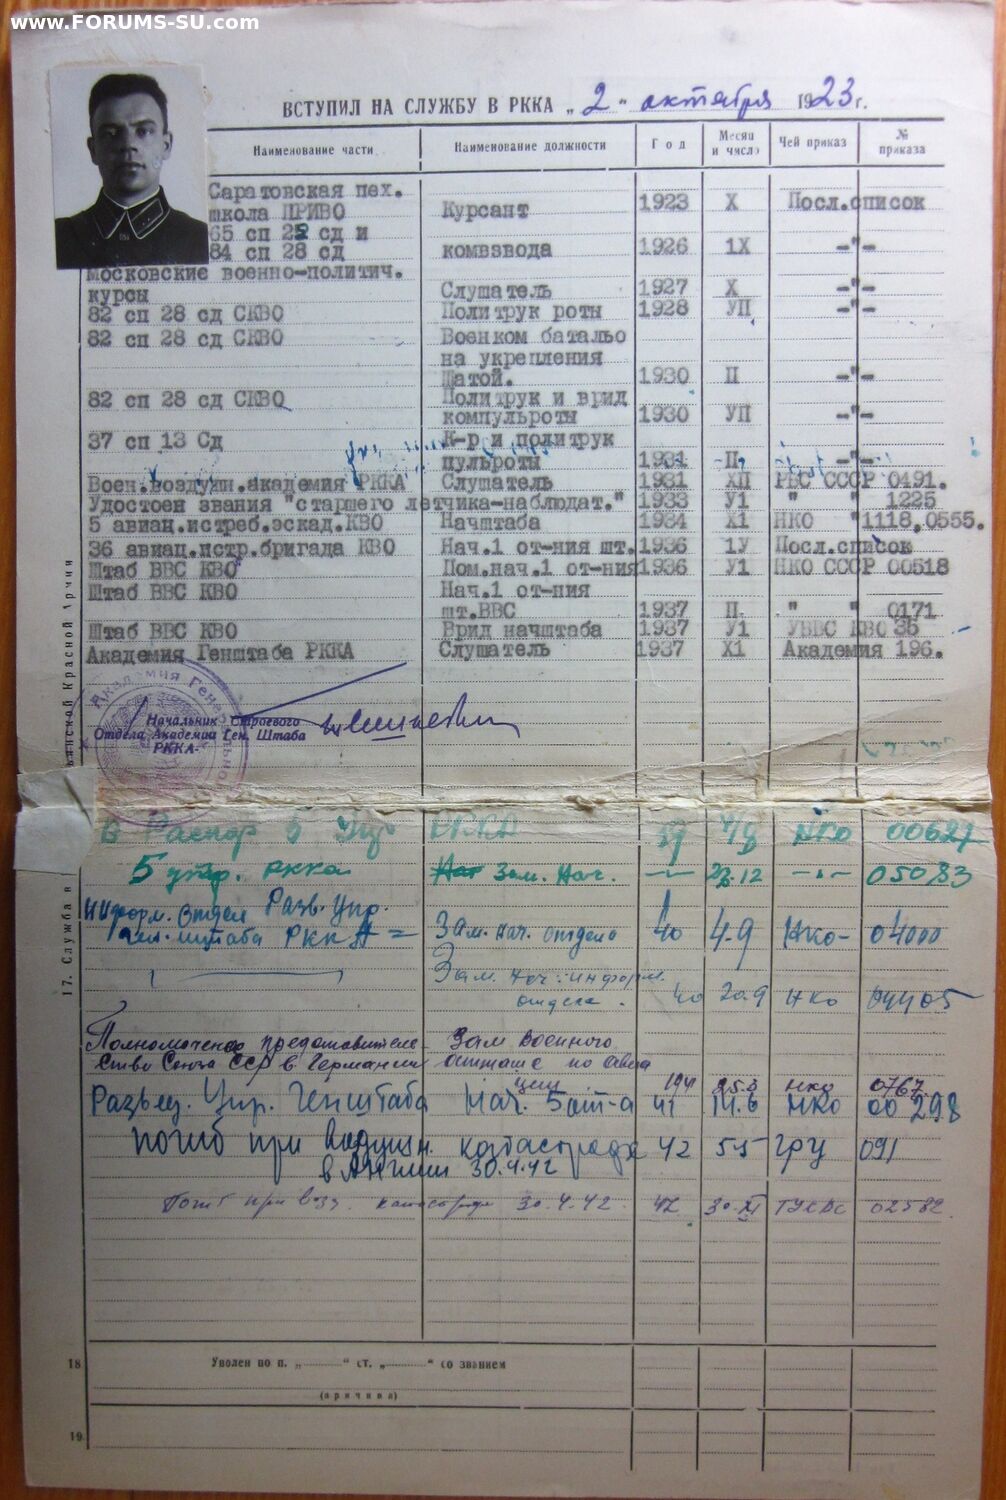 www.FORUMS-SU.com
ВСТУПИЛ НА СЛУЖБУ В РККА „2“ октября 1923 г.
Наименование части Наименование должности Год Месяц и число Чей приказ № приказа
Саратовская пех.
школа ПРИВО Курсант 1923 X Посл.список
65 сп 22 сд и
84 сп 28 сд комвзвода 1926 1X -"-
Московские военно-политич.
курсы Слушатель 1927 X -"-
82 сп 28 сд СКВО Политрук роты 1928 УП -"-
82 сп 28 сд СКВО Военком батальо
на укрепления
Шатой. 1930 П -"-
82 сп 28 сд СКВО Политрук и врид
компульроты 1930 УП -"-
37 сп 13 Сд К-р и политрук
пульроты 1931 П -"-
Воен.воздушн.академия РККА Слушатель 1931 ХП РВС СССР 0491.
Удостоен звания "старшего летчика-наблюдат." 1933 У1 " " 1225
5 авиац.истреб.эскад.КВО Начштаба 1934 X1 НКО "1118,0555.
36 авиац.истр.бригада КВО Нач.1 от-ния шт. 1936 1У Посл.список
Штаб ВВС КВО Пом.нач.1 от-ния 1936 У1 НКО СССР 00518
Штаб ВВС КВО Нач.1 от-ния
шт.ВВС 1937 П. " " 0171
Штаб ВВС КВО Врид начштаба 1937 У1 УВВС КВО 35
Академия Генштаба РККА Слушатель 1937 X1 Академия 196.
Академия Генерального
Начальник Строевого
Отдела Академии Ген. Штаба
РККА-
В Распор 5 Упр РККА НКО 00627
5 упр. РККА Нач Зам. Нач. 12 05083
Информ. отдел Разв. Упр.
Ген. штаба РККА = Зам. нач. отдела 40 4.9 НКО- 04000
Зам. нач. информ.
отдела. 40 20.9 НКО 04405
Полномочное представитель
ство Союза ССР в Германии Зам Военного
атташе по авиа
ции 1941 25.3 НКО 0767
Развед. Упр. Генштаба Нач. 5 от-а 41 14.6 НКО 00298
погиб при воздушн. катастрофе 42 5.5 ГРУ 091
в Англии 30.4.42
Погиб при возд. катастрофе 30.4.42. 42 30.XI ГУК 02582
17. Служба в
Красной Армии
18 Уволен по п. „ “ ст. „ “ со званием
(причина)
19.